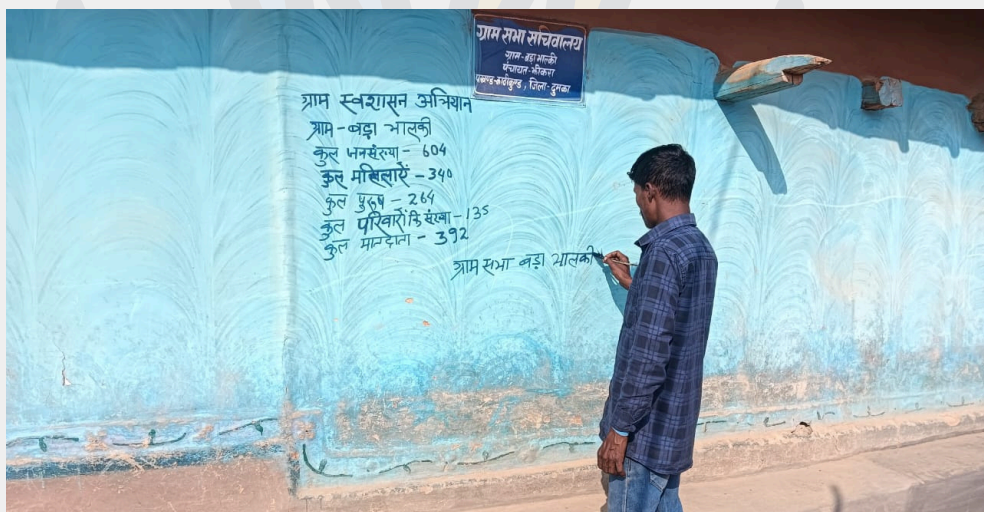 ग्राम सभा सचिवालय
ग्राम-बड़ा भाल्की
पंचायत-झीकरा
प्रखण्ड-काठीकुण्ड, जिला-दुमका
ग्राम स्वशासन अभियान
ग्राम - बड़ा भालकी
कुल जनसंख्या - 604
कुल महिलाऐं - 340
कुल पुरूष - 264
कुल परिवारों कि संख्या - 135
कुल मतदाता - 392
ग्राम सभा बड़ा भालकी